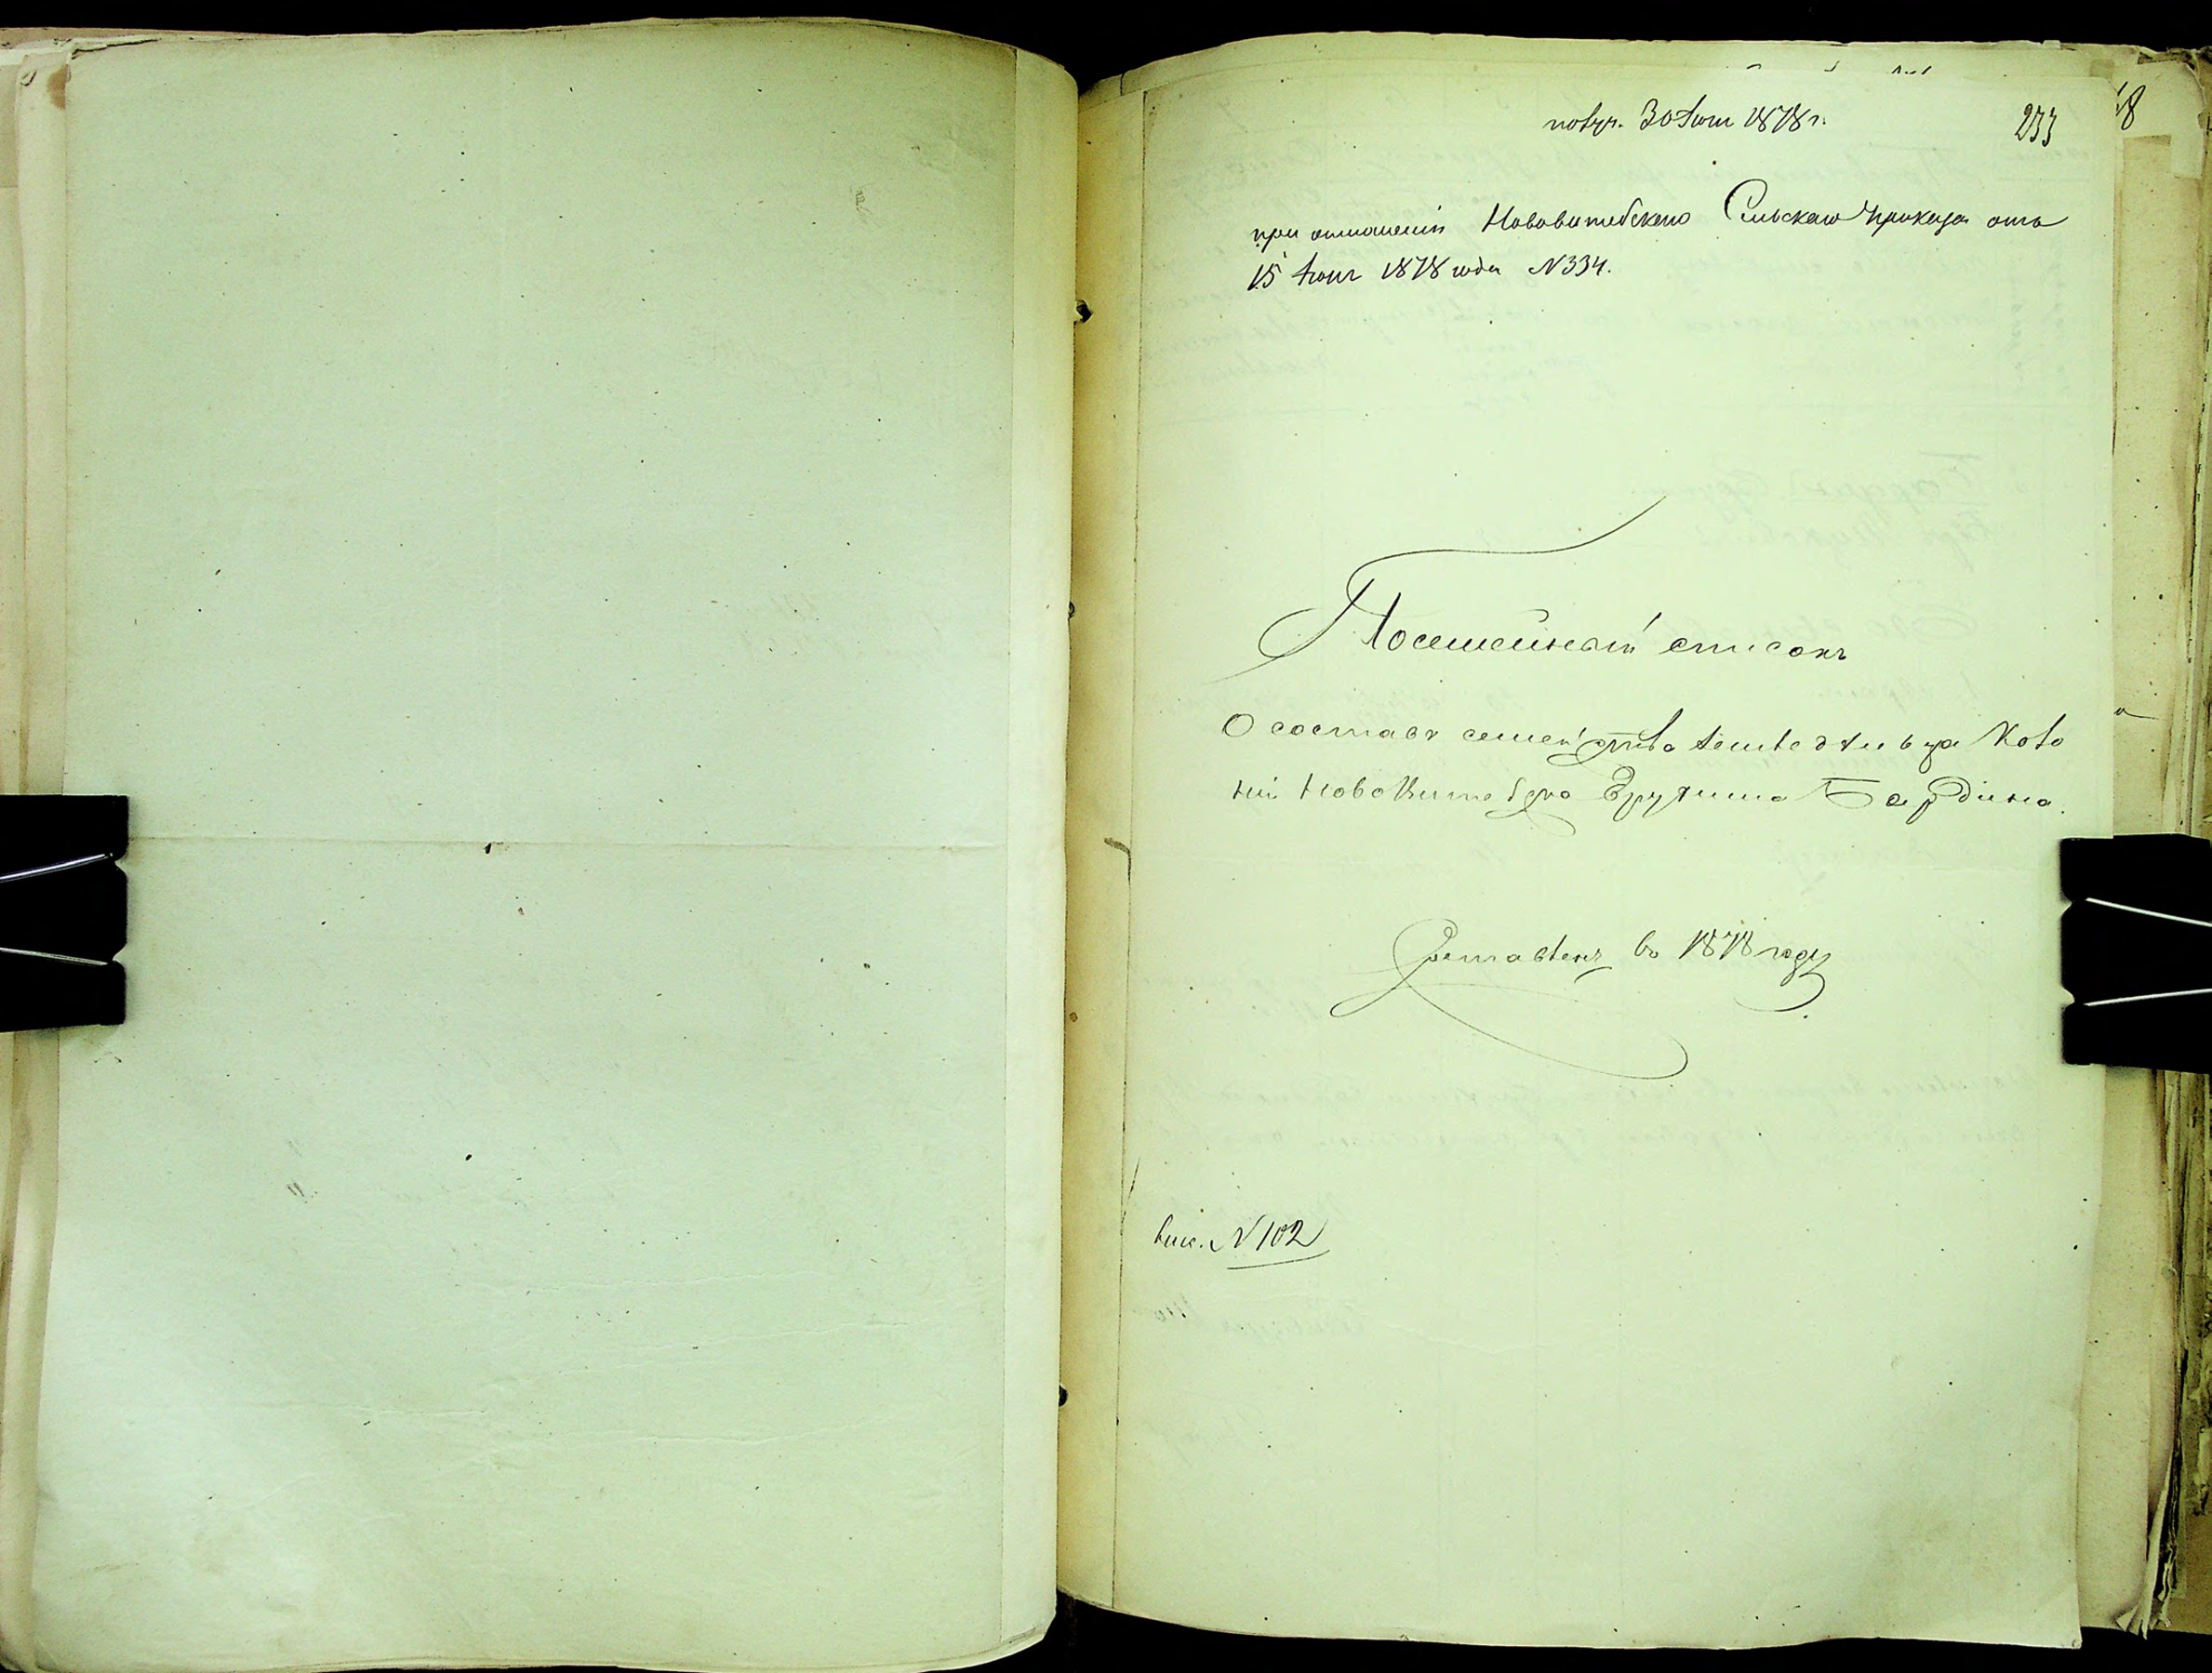 получ. 30 Іюля 1878 г.
233
при отношеніи Нововитебскаго Сельскаго приказа отъ
15 Іюля 1878 года N 334.
Посемейный списокъ
О составѣ семейства земледѣльца Коло
ніи НовоВитебска Бардина.
Составленъ въ 1878 году
N 102